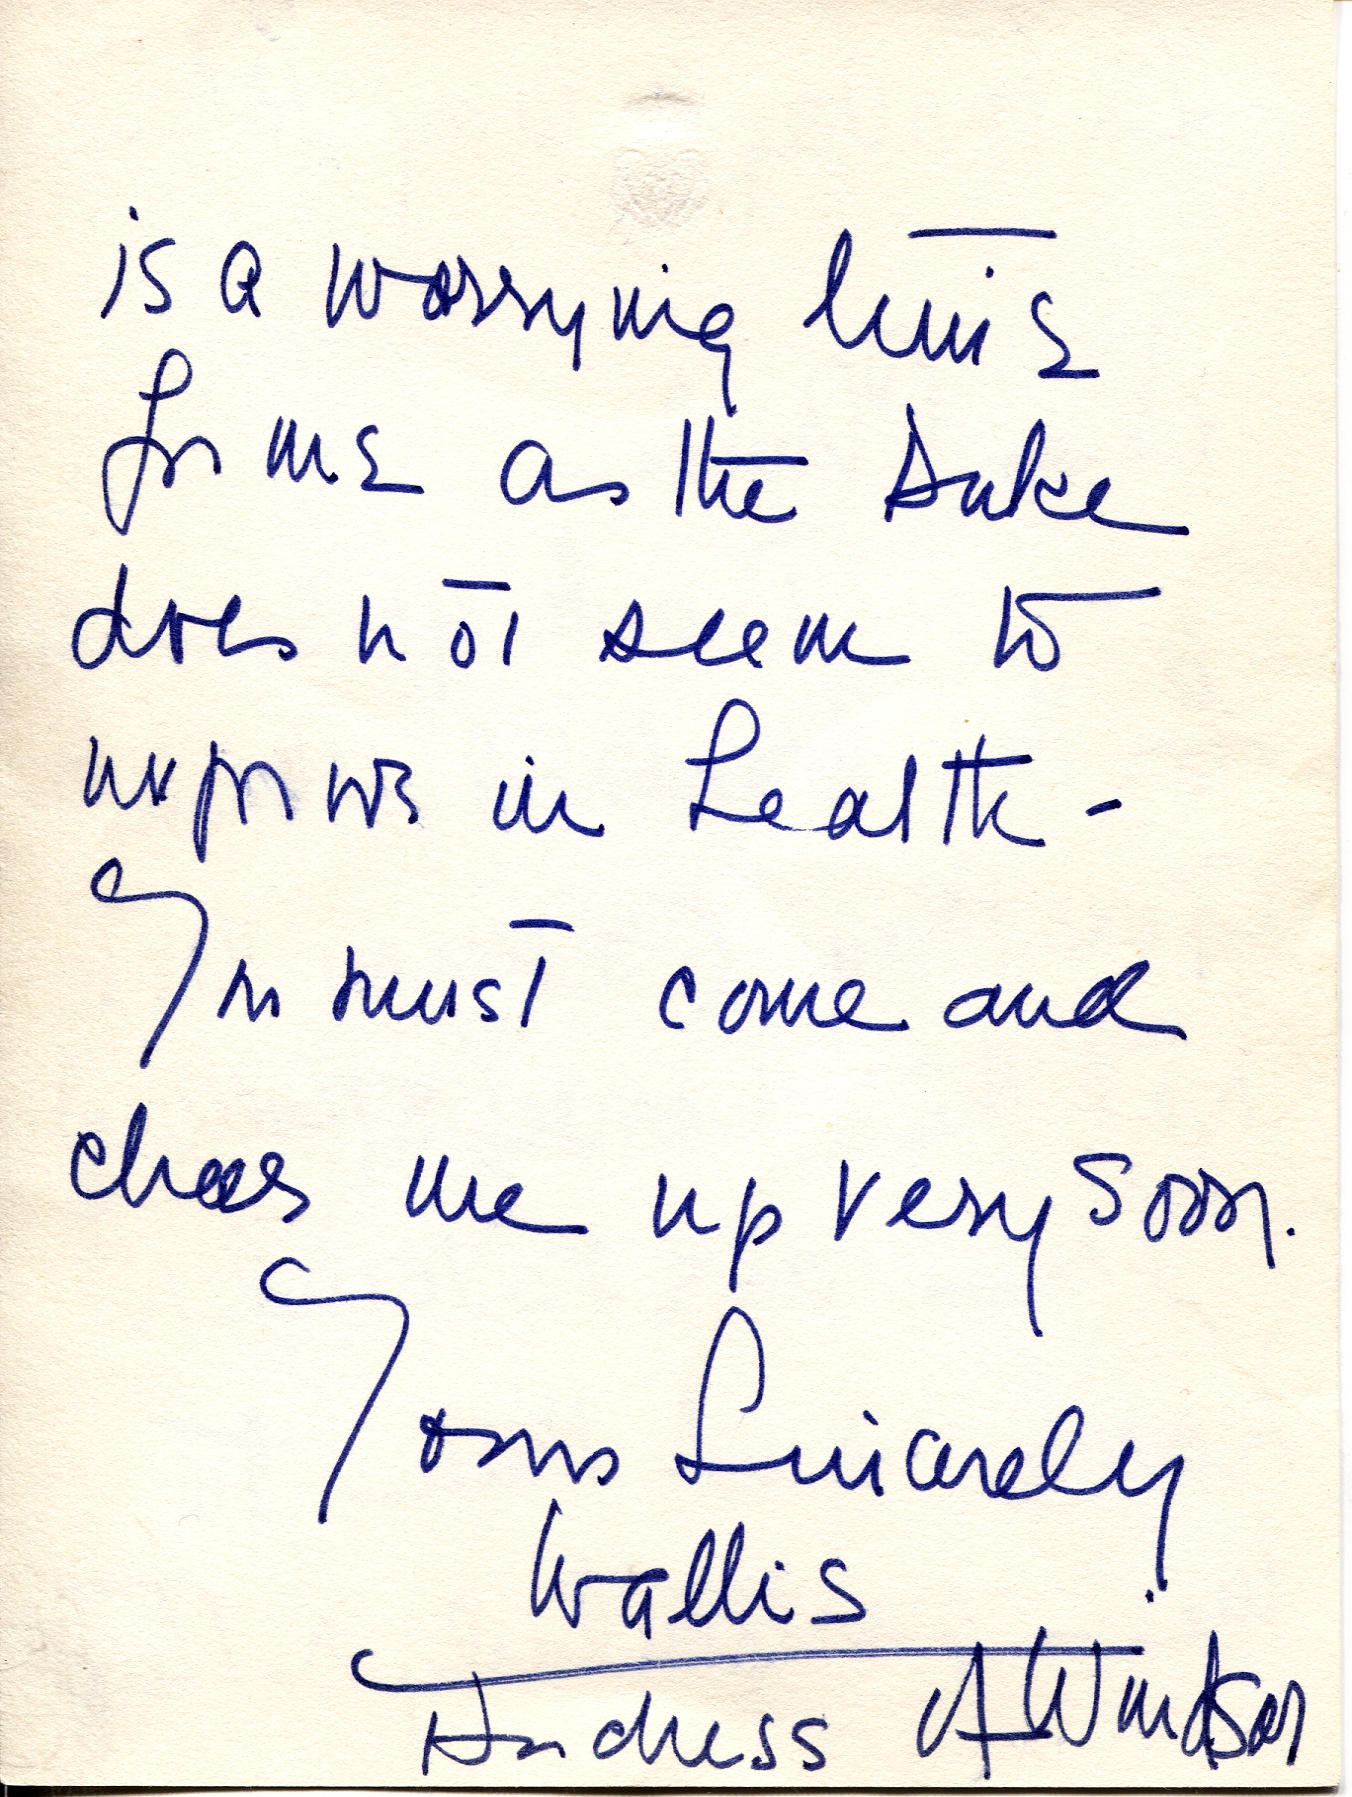 is a worrying time
for me as the Duke
does not seem to
improve in health -
You must come and
cheer me up very soon.
Yours Sincerely
Wallis
Duchess of Windsor